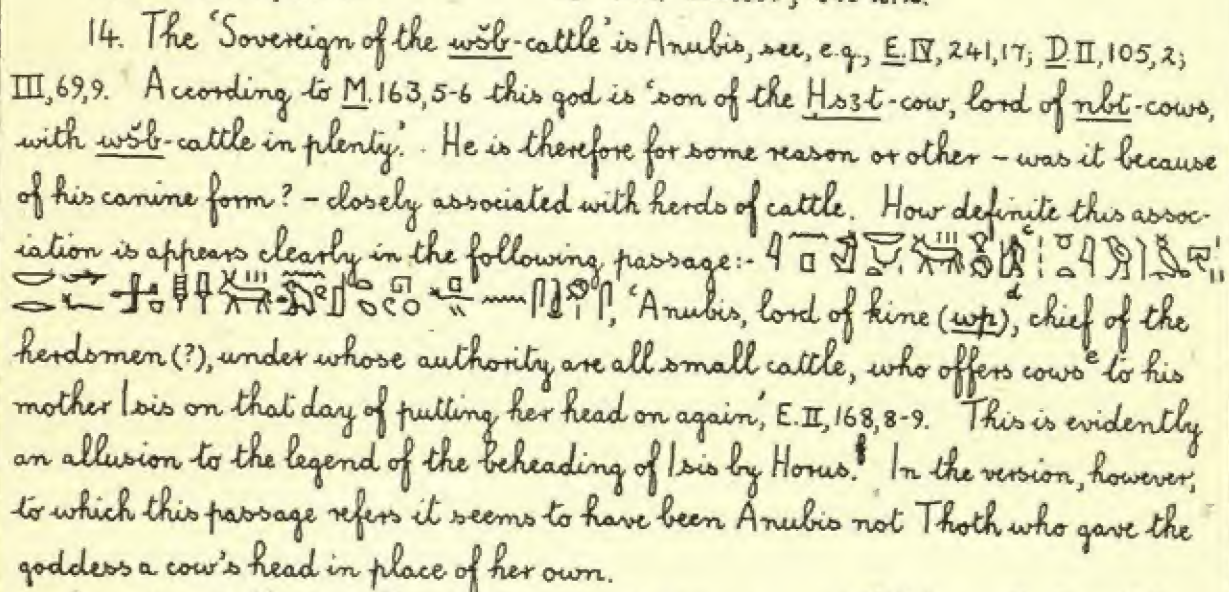 14. The 'Sovereign of the wšb-cattle' is Anubis, see, e.g., E.IV,241,17; D.II,105,2;
III,69,9. According to M.163,5-6 this god is 'son of the Ḥsꜣt-cow, lord of nbt-cows,
with wšb-cattle in plenty'. He is therefore for some reason or other – was it because
of his canine form? – closely associated with herds of cattle. How definite this assoc-
iation is appears clearly in the following passage:-
'Anubis, lord of kine (wp)ᵈ, chief of the
herdsmen (?), under whose authority are all small cattle, who offers cowsᵉ to his
mother Isis on that day of putting her head on again', E.II,168,8-9. This is evidently
an allusion to the legend of the beheading of Isis by Horus.ᶠ In the version, however,
to which this passage refers it seems to have been Anubis not Thoth who gave the
goddess a cow's head in place of her own.